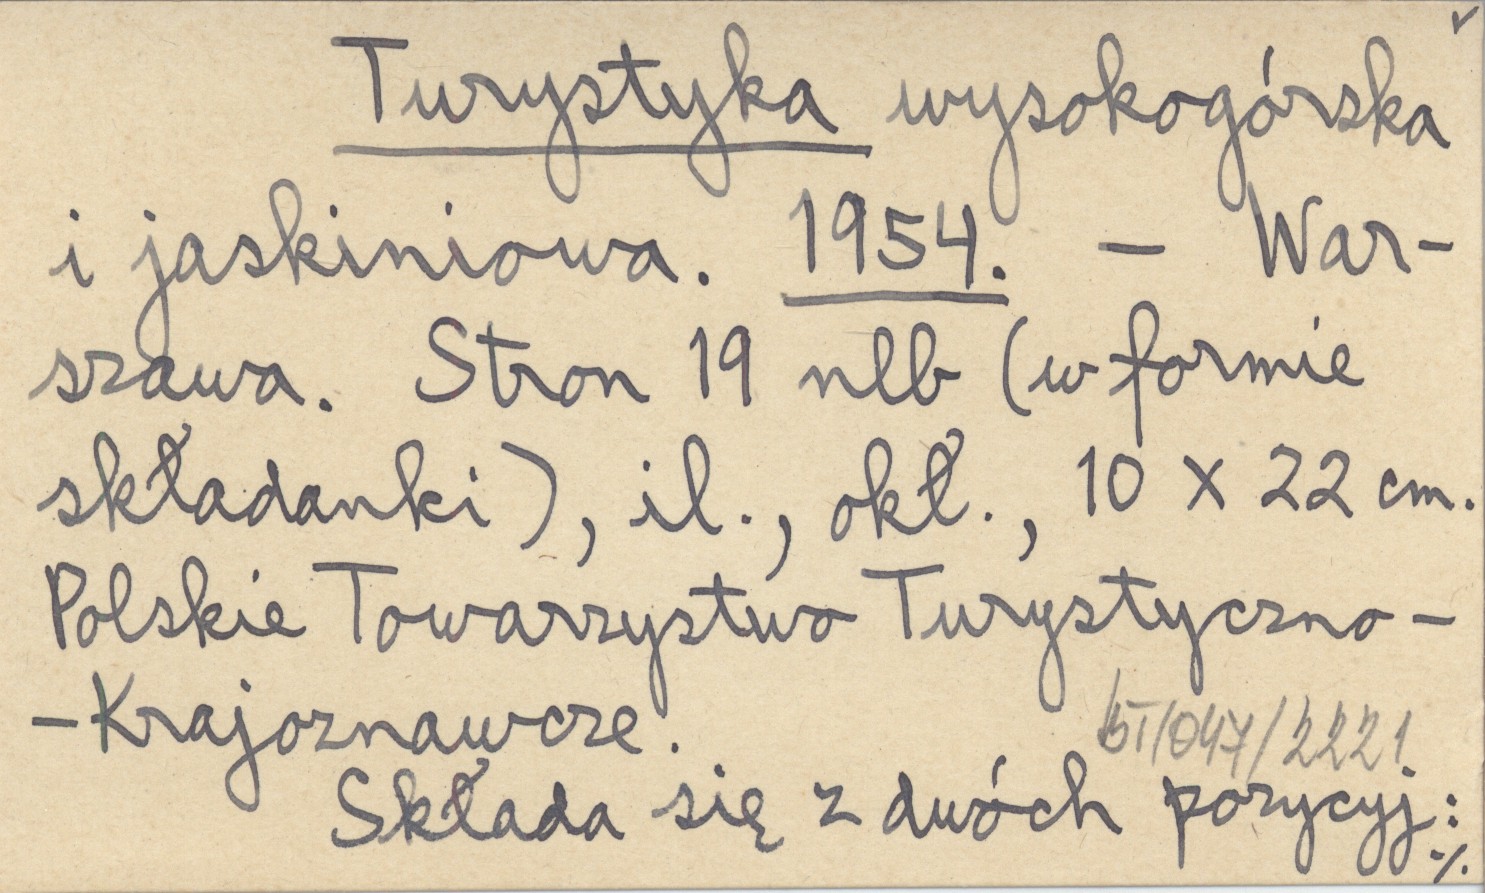 Turystyka wysokogórska
i jaskiniowa. 1954. – War-
szawa. Stron 19 nlb (w formie
składanki), il., okł., 10 x 22 cm.
Polskie Towarzystwo Turystyczno-
-Krajoznawcze.
bT/047/2221
Składa się z dwóch pozycyj:
./.